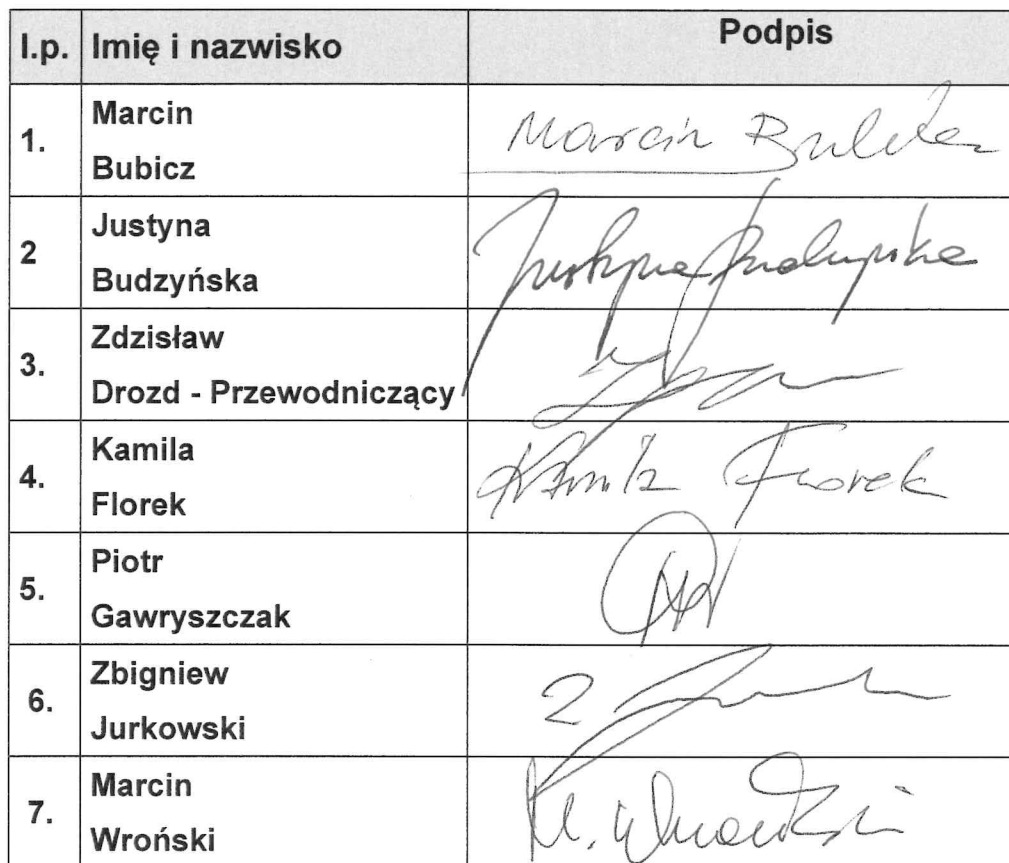 l.p. Imię i nazwisko Podpis
1. Marcin Bubicz Marcin
2 Justyna Budzyńska Justyna
3. Zdzisław Drozd - Przewodniczący
4. Kamila Florek Kamila Florek
5. Piotr Gawryszczak
6. Zbigniew Jurkowski
7. Marcin Wroński